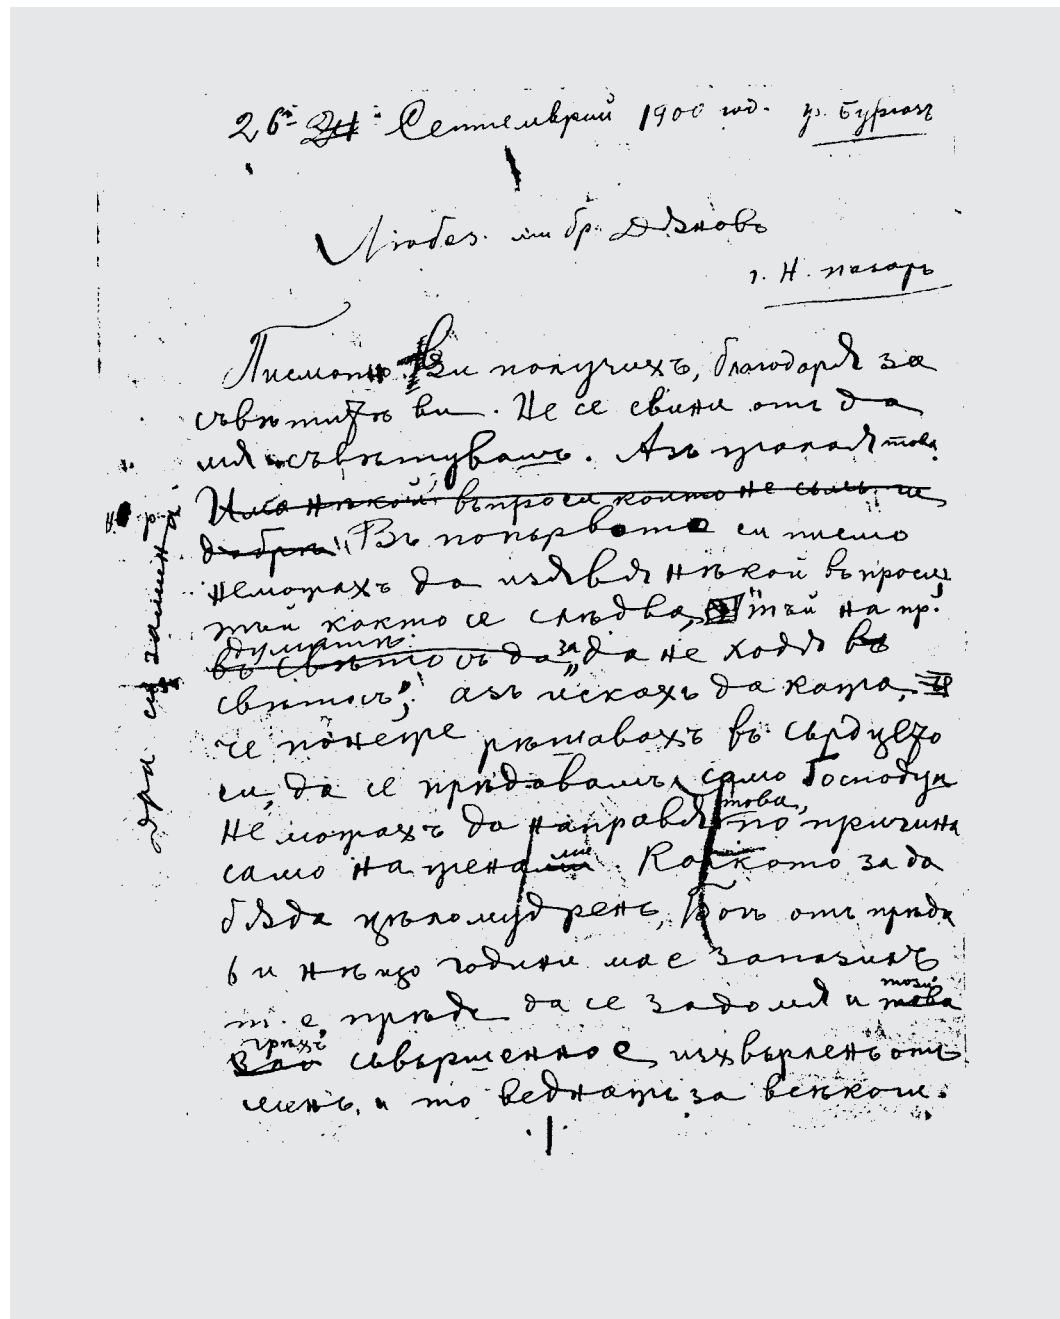 26й Септемврий 1900 год. гр. Бургазъ
Любез. ми бр. Дѫновъ
г. Н. пазаръ
Писмото Ви получихъ, благодарѭ за
съвѣтитѣ ви. Не се свини отъ да
мѧ съвѣтувашъ. Азъ желаѭ това
Има нѣкой въпроси които не съмъ ги
добрѣ Въ попървото си писмо
неможахъ да изѭвѭ нѣкой въпроси,
тъй както се слѣдва, "тъй напр.
думитѣ
въ свѣтось да за „да не ходѭ въ
свѣтось"; азъ исках да кажа,
че понеже рѣшавахъ въ сърдцето
си, да се прѣдавамъ само Господу и
не можахъ да направѭ това, по причина
само на жена ми. Колкото за да
бѫда цѣломудренъ, Богъ отъ прѣди
6 и нѣщо години ма е запазилъ
т. е. прѣди да се задомѭ и този това
грѣхъ
зло съвършенно е изхвърленъ отъ
менъ, и то веднажъ за всѣкоги.